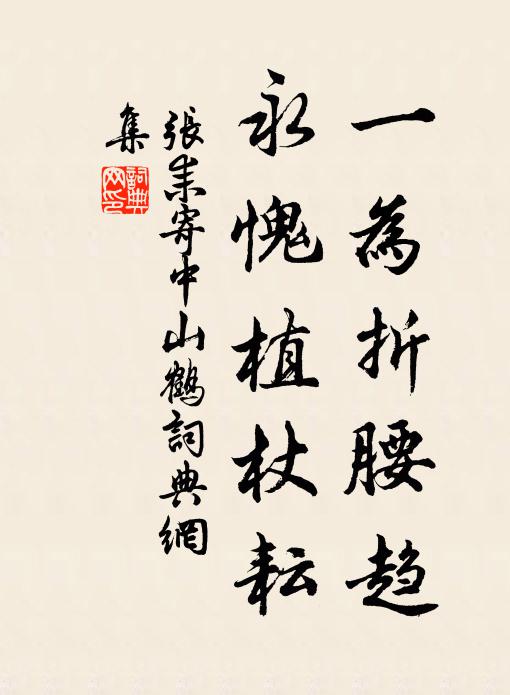 一為折腰趋
永愧植杖耘
張耒寄中山鶴詞典網
集
詞典
网印